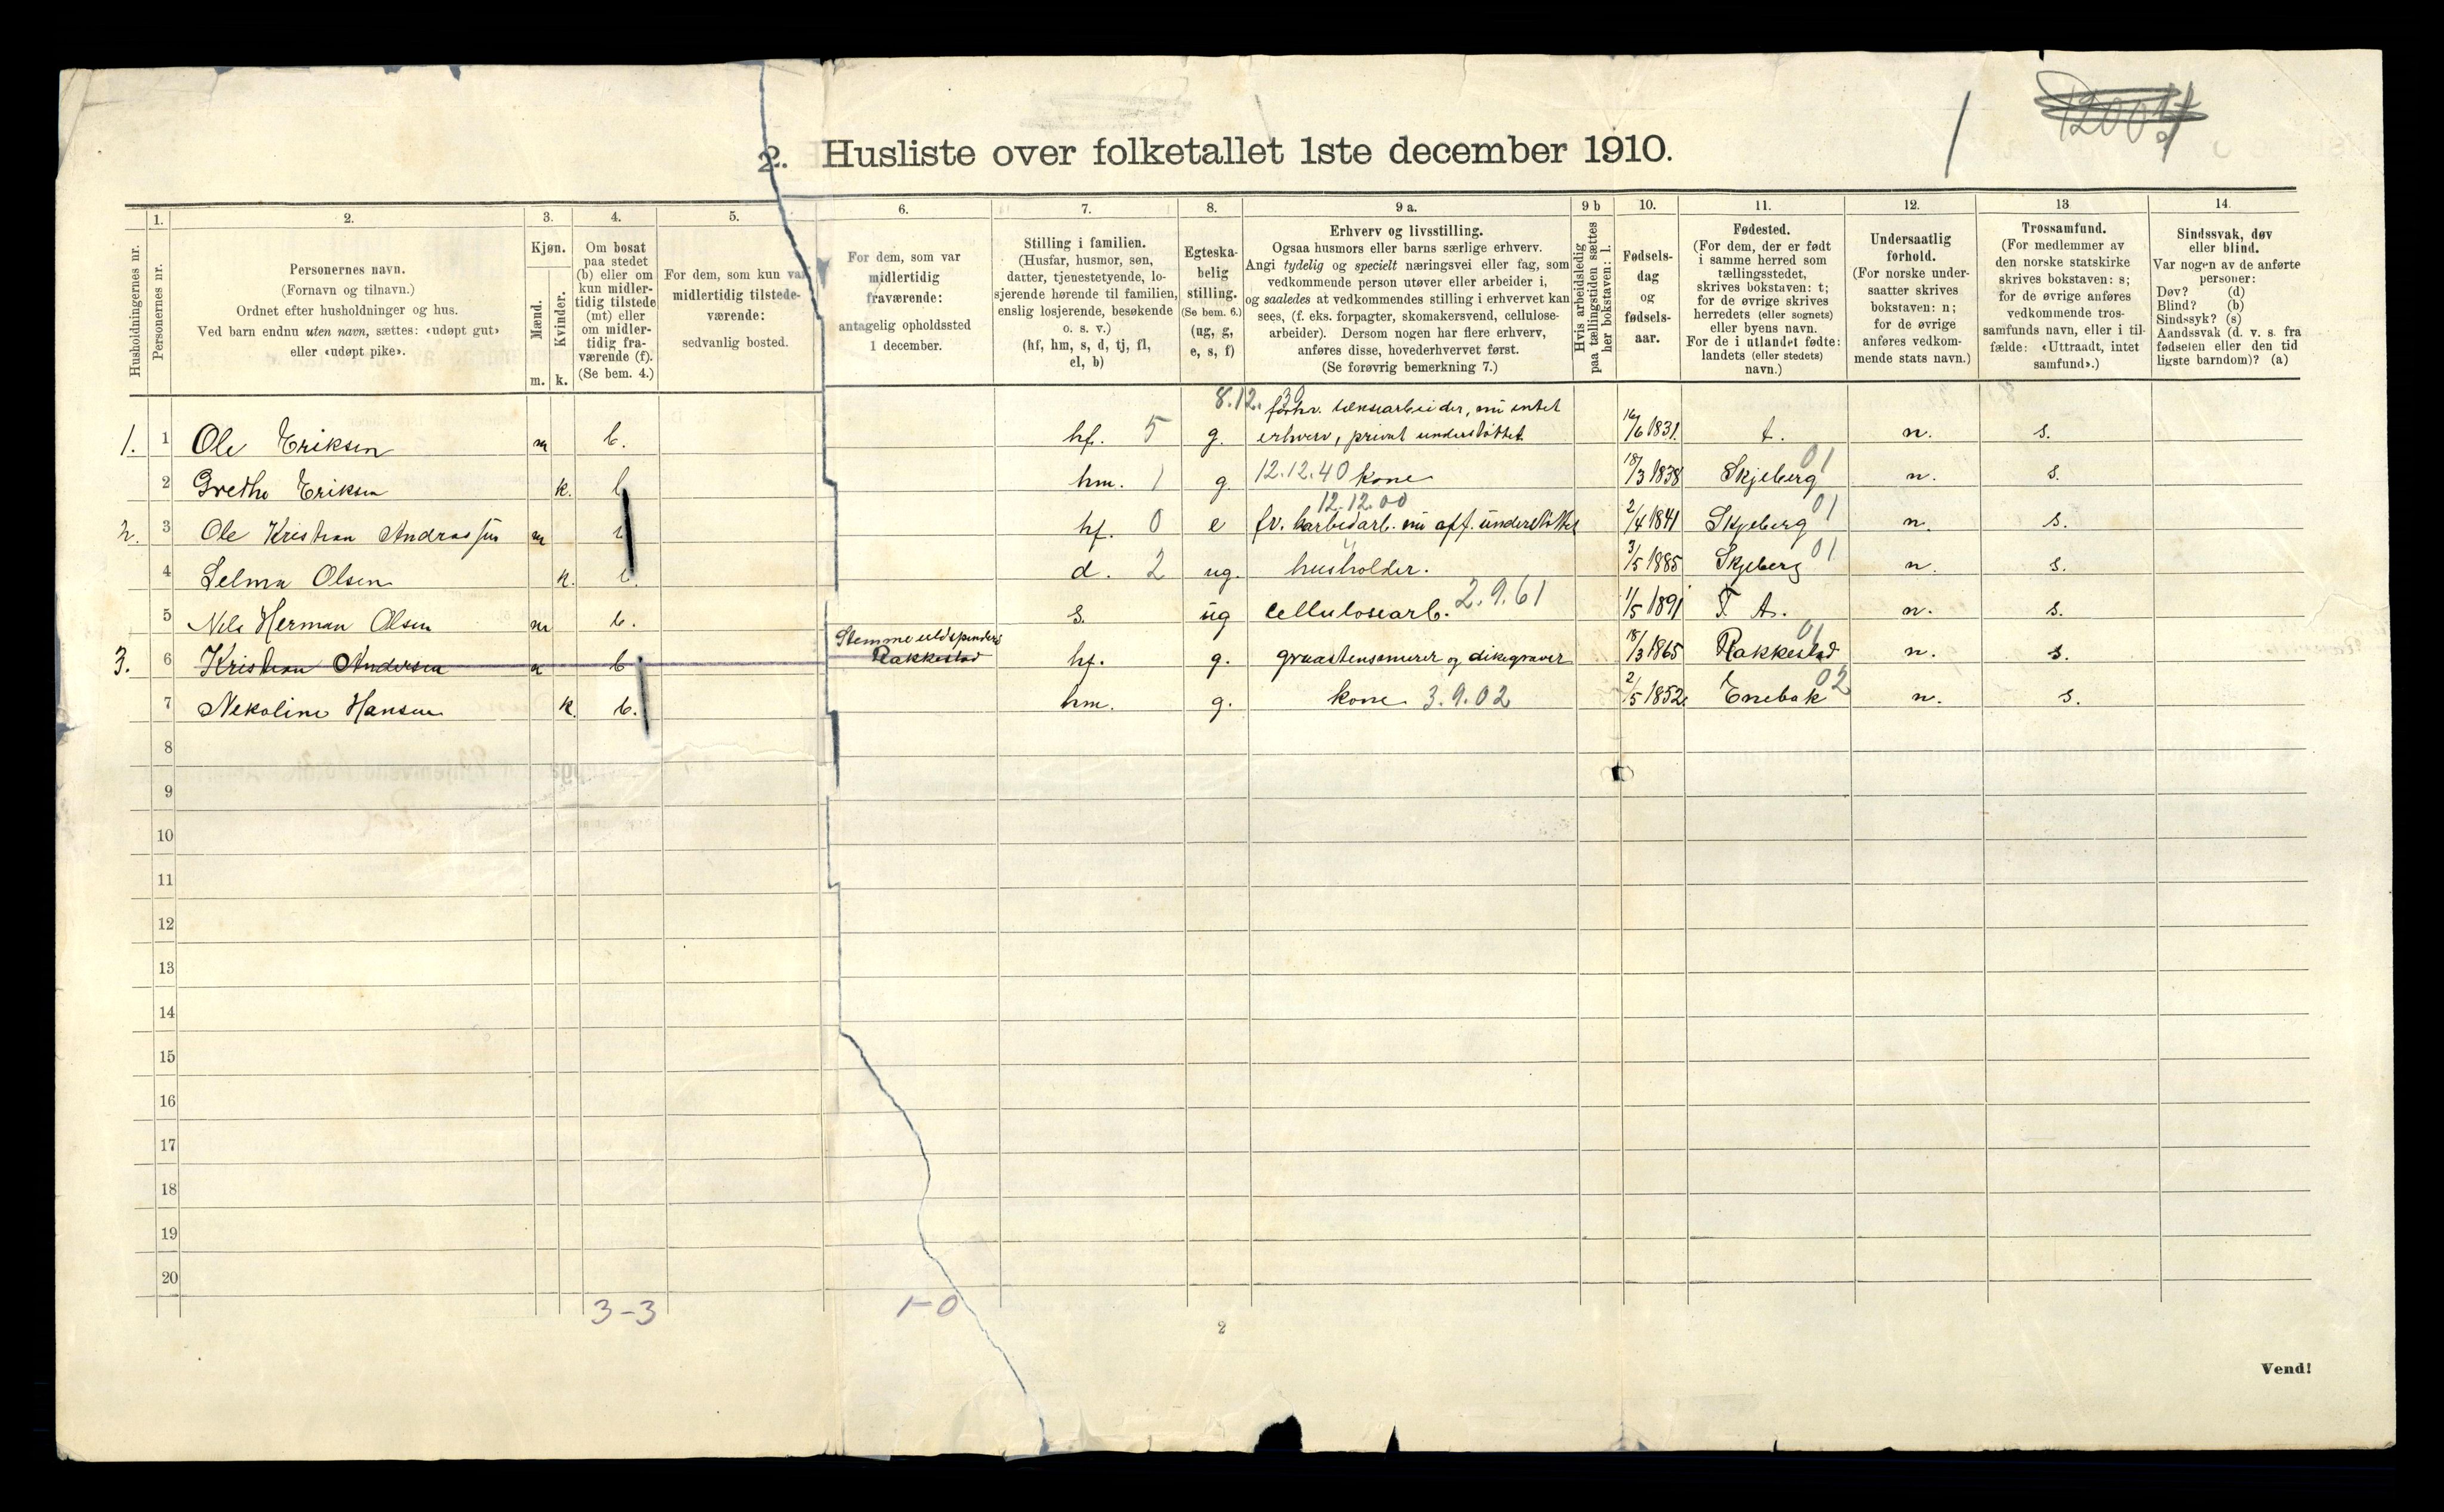 1200
2. Husliste over folketallet 1ste december 1910.
1. 2. 3. 4. 5. 6. 7. 8. 9 a. 9 b 10. 11. 12. 13 14.
Husholdningernes nr.
Personernes nr.
Personernes navn.
(Fornavn og tilnavn.)
Ordnet efter husholdninger og hus.
Ved barn endnu uten navn, sættes: «udøpt gut»
eller «udøpt pike».
Kjøn.
Mænd.
Kvinder.
m. k.
Om bosat
paa stedet
(b) eller om
kun midler-
tidig tilstede
(mt) eller
om midler-
tidig fra-
værende (f).
(Se bem. 4.)
For dem, som kun var
midlertidig tilstede-
værende:
sedvanlig bosted.
For dem, som var
midlertidig
fraværende:
antagelig opholdssted
1 december.
Stilling i familien.
(Husfar, husmor, søn,
datter, tjenestetyende, lo-
sjerende hørende til familien,
enslig losjerende, besøkende
o. s. v.)
(hf, hm, s, d, tj, fl,
el, b)
Egteska-
belig
stilling.
(Se bem. 6.)
(ug, g,
e, s, f)
Erhverv og livsstilling.
Ogsaa husmors eller barns særlige erhverv.
Angi tydelig og specielt næringsvei eller fag, som
vedkommende person utøver eller arbeider i,
og saaledes at vedkommendes stilling i erhvervet kan
sees, (f. eks. forpagter, skomakersvend, cellulose-
arbeider). Dersom nogen har flere erhverv,
anføres disse, hovederhvervet først.
(Se forøvrig bemerkning 7.)
Hvis arbeidsledig
paa tællingstiden sættes
her bokstaven: l.
Fødsels-
dag
og
fødsels-
aar.
Fødested.
(For dem, der er født
i samme herred som
tællingsstedet,
skrives bokstaven: t;
for de øvrige skrives
herredets (eller sognets)
eller byens navn.
For de i utlandet fødte:
landets (eller stedets)
navn.)
Undersaatlig
forhold.
(For norske under-
saatter skrives
bokstaven: n;
for de øvrige
anføres vedkom-
mende stats navn.)
Trossamfund.
(For medlemmer av
den norske statskirke
skrives bokstaven: s;
for de øvrige anføres
vedkommende tros-
samfunds navn, eller i til-
fælde: «Uttraadt, intet
samfund».)
Sindssvak, døv
eller blind.
Var nogen av de anførte
personer:
Døv? (d)
Blind? (b)
Sindssyk? (s)
Aandssvak (d. v. s. fra
fødselen eller den tid
ligste barndom)? (a)
8.12.30
forhv. løkusarbeider, nu intet
1. 1 Ole Eriksen m b. hf. 5 g. erhverv, privat understøttet 16/6 1831. t. n. s.
2 Grethe Eriksen k. b hm. 1 g. 12.12.40 kone 18/3 1838 Skjeberg 01 n. s.
12.12.00
2. 3 Ole Kristian Andrassen m b hf. 0 e fv. karbidarb. nu off. understøttet 2/4 1841 Skjeberg 01 n. s.
4 Selma Olsen k. b. d. 2 ug. husholder. 3/5 1885 Skjeberg 01 n. s.
5 Nils Herman Olsen m b. s. ug cellulosearb. 2.9.61 1/5 1891 T. A. n. s.
3. 6 Kristian Andersen m b Rakkestad hf. g. graastensmurer og dikegraver 18/3 1865 Rakkestad 01 n. s.
7 Nekoline Hansen k. b. hm. g. kone 3.9.02 2/5 1852. Enebak 02 n. s.
8
9
10
11
12
13
14
15
16
17
18
19
20
3-3 1-0
2
Vend!